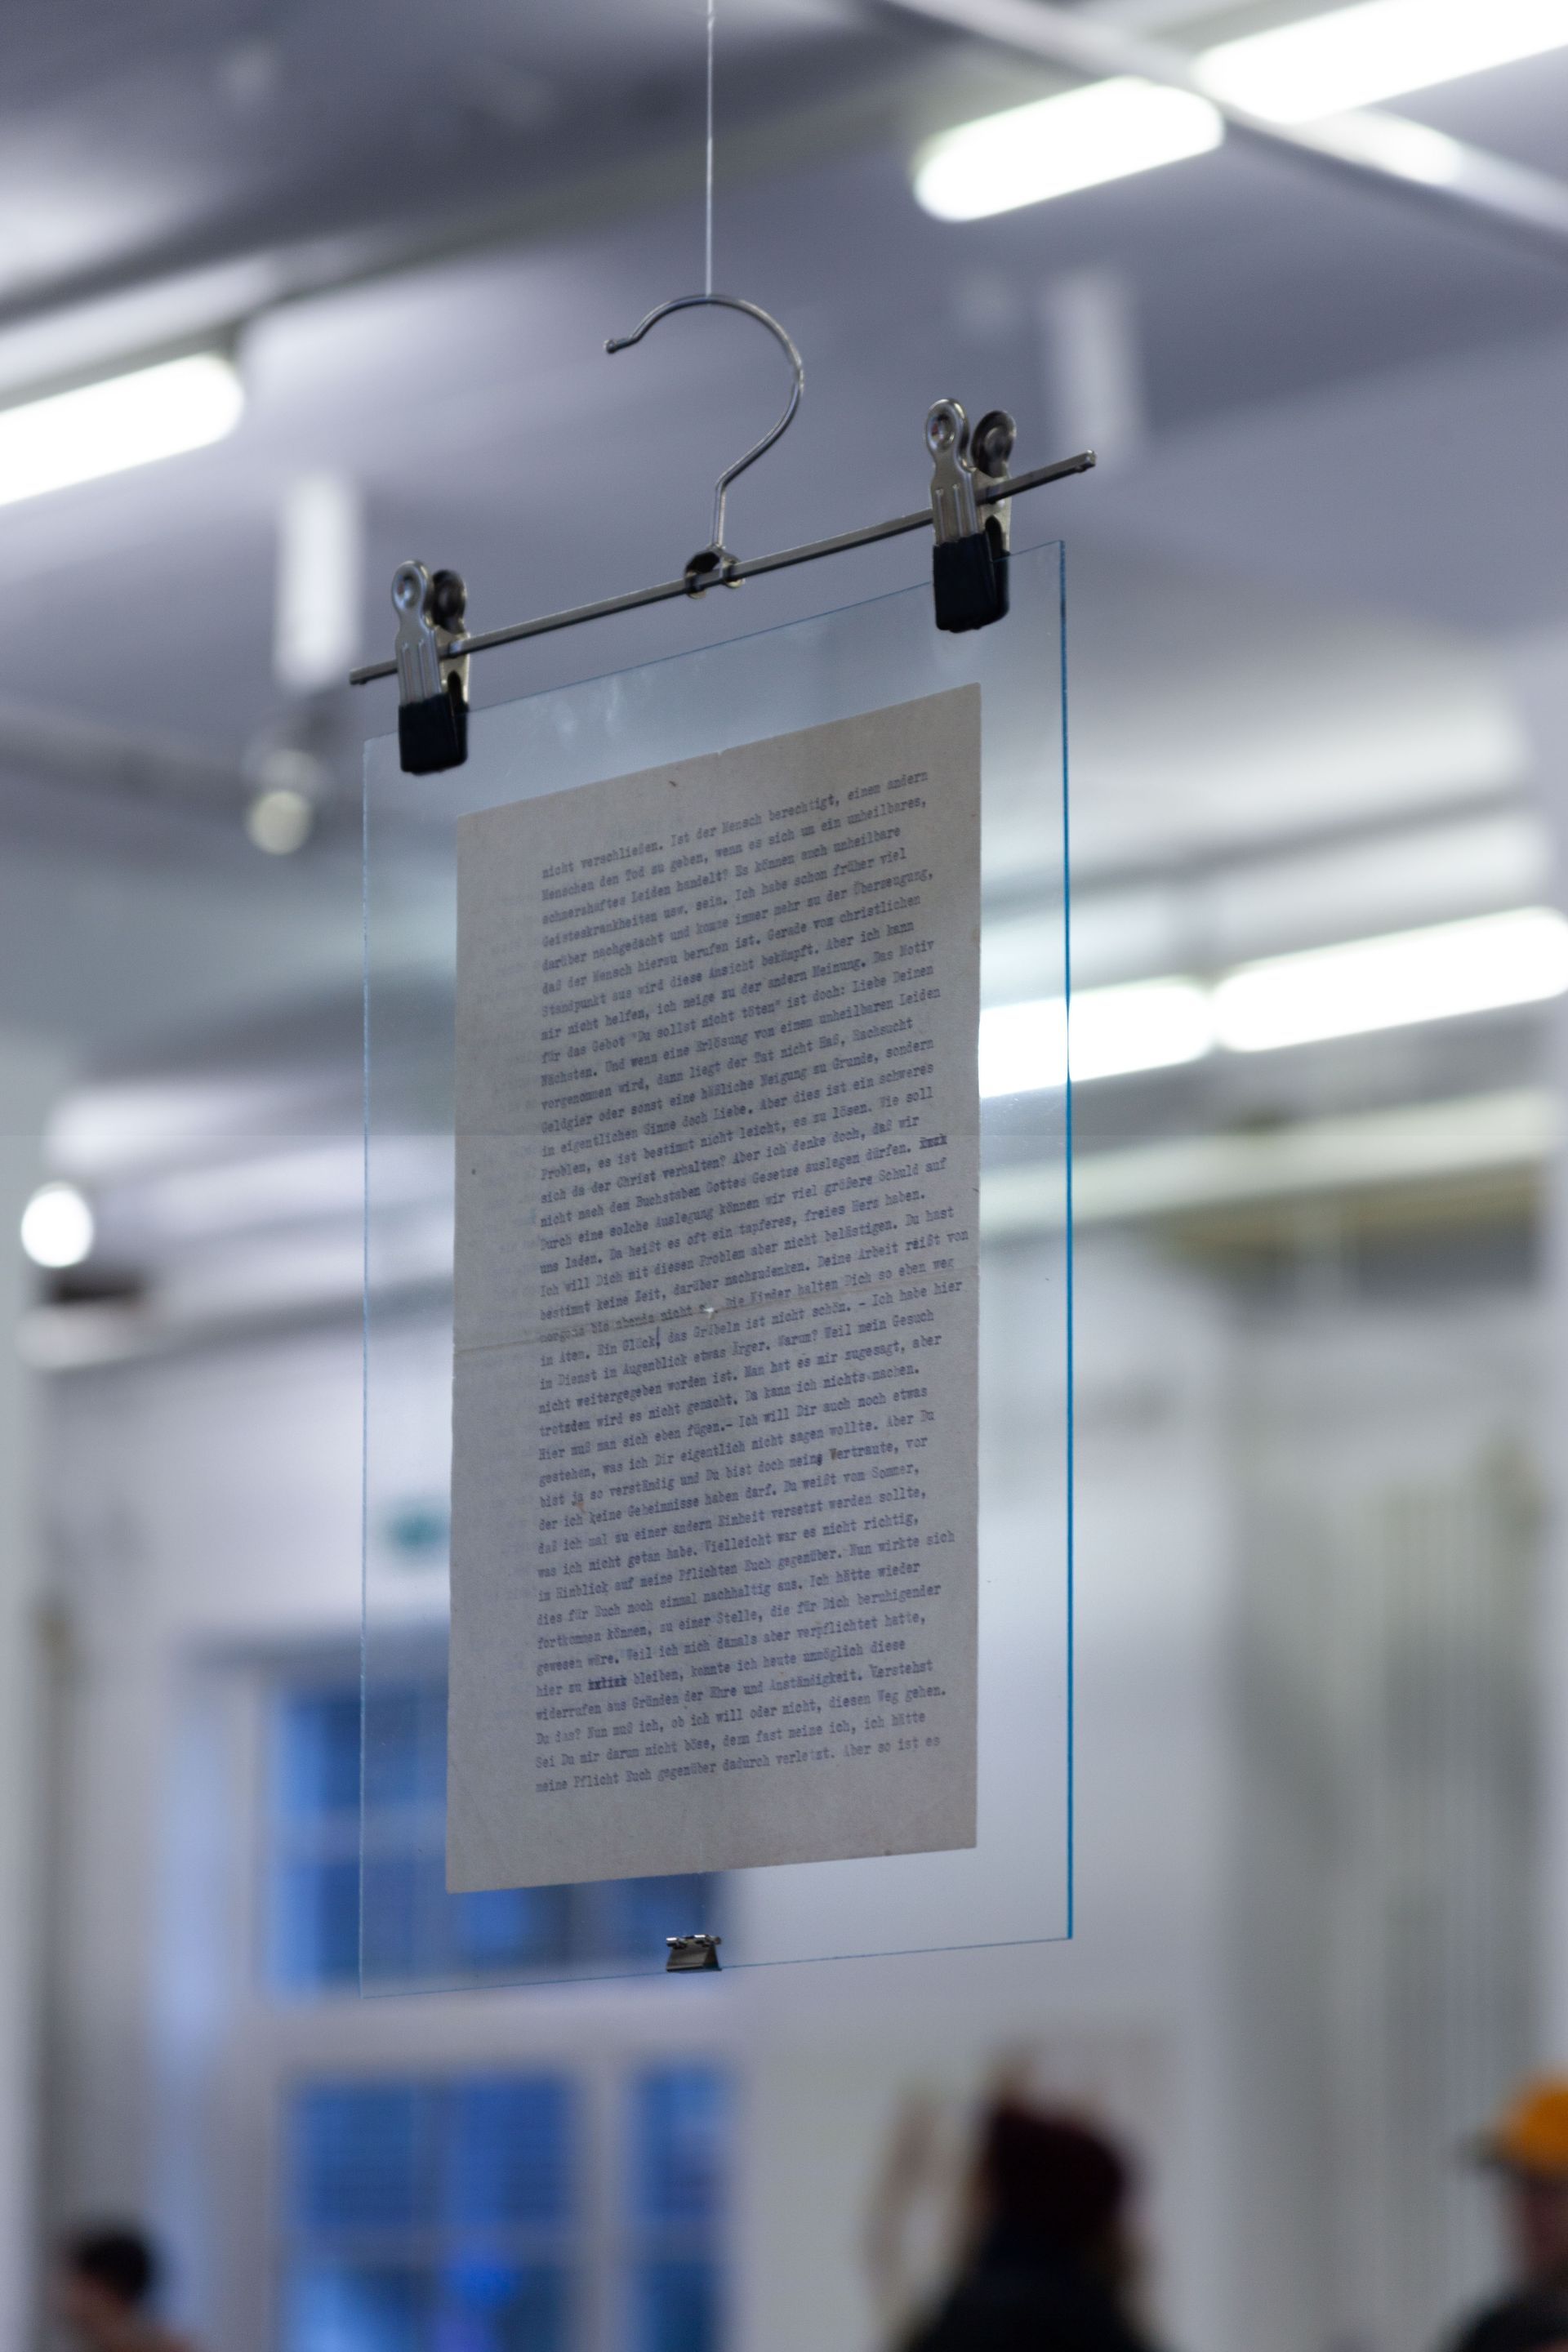 nicht verschließen. Ist der Mensch berechtigt, einem andern
Menschen den Tod zu geben, wenn es sich um ein unheilbares,
schmerzhaftes Leiden handelt? Es können auch unheilbare
Geisteskrankheiten usw. sein. Ich habe schon früher viel
darüber nachgedacht und komme immer mehr zu der Überzeugung,
daß der Mensch hierzu berufen ist. Gerade vom christlichen
Standpunkt aus wird diese Ansicht bekämpft. Aber ich kann
mir nicht helfen, ich neige zu der andern Meinung. Das Motiv
für das Gebot "Du sollst nicht töten" ist doch: Liebe Deinen
Nächsten. Und wenn eine Erlösung von einem unheilbaren Leiden
vorgenommen wird, dann liegt der Tat nicht Haß, Rachsucht
Geldgier oder sonst eine häßliche Neigung zu Grunde, sondern
in eigentlichen Sinne doch Liebe. Aber dies ist ein schweres
Problem, es ist bestimmt nicht leicht, es zu lösen. Wie soll
sich da der Christ verhalten? Aber ich denke doch, daß wir
nicht nach dem Buchstaben Gottes Gesetze auslegen dürfen.
Durch eine solche Auslegung können wir viel größere Schuld auf
uns laden. Da heißt es oft ein tapferes, freies Herz haben.
Ich will Dich mit diesem Problem aber nicht belästigen. Du hast
bestimmt keine Zeit, darüber nachzudenken. Deine Arbeit reißt von
morgens bis abends nicht Die Kinder halten Dich so eben weg
in Atem. Ein Glück, das Grübeln ist nicht schön. - Ich habe hier
im Dienst im Augenblick etwas Ärger. Warum? Weil mein Gesuch
nicht weitergegeben worden ist. Man hat es mir zugesagt, aber
trotzdem wird es nicht gemacht. Da kann ich nichts machen.
Hier muß man sich eben fügen.- Ich will Dir auch noch etwas
gestehen, was ich Dir eigentlich nicht sagen wollte. Aber Du
bist ja so verständig und Du bist doch meine Vertraute, vor
der ich keine Geheimnisse haben darf. Du weißt vom Sommer,
daß ich mal zu einer andern Einheit versetzt werden sollte,
was ich nicht getan habe. Vielleicht war es nicht richtig,
im Hinblick auf meine Pflichten Euch gegenüber. Nun wirkte sich
dies für Euch noch einmal nachhaltig aus. Ich hätte wieder
fortkommen können, zu einer Stelle, die für Dich beruhigender
gewesen wäre. Weil ich mich damals aber verpflichtet hatte,
hier zu bleiben, konnte ich heute unmöglich diese
widerrufen aus Gründen der Ehre und Anständigkeit. Verstehst
Du das? Nun muß ich, ob ich will oder nicht, diesen Weg gehen.
Sei Du mir darum nicht böse, denn fast meine ich, ich hätte
meine Pflicht Euch gegenüber dadurch verletzt. Aber so ist es